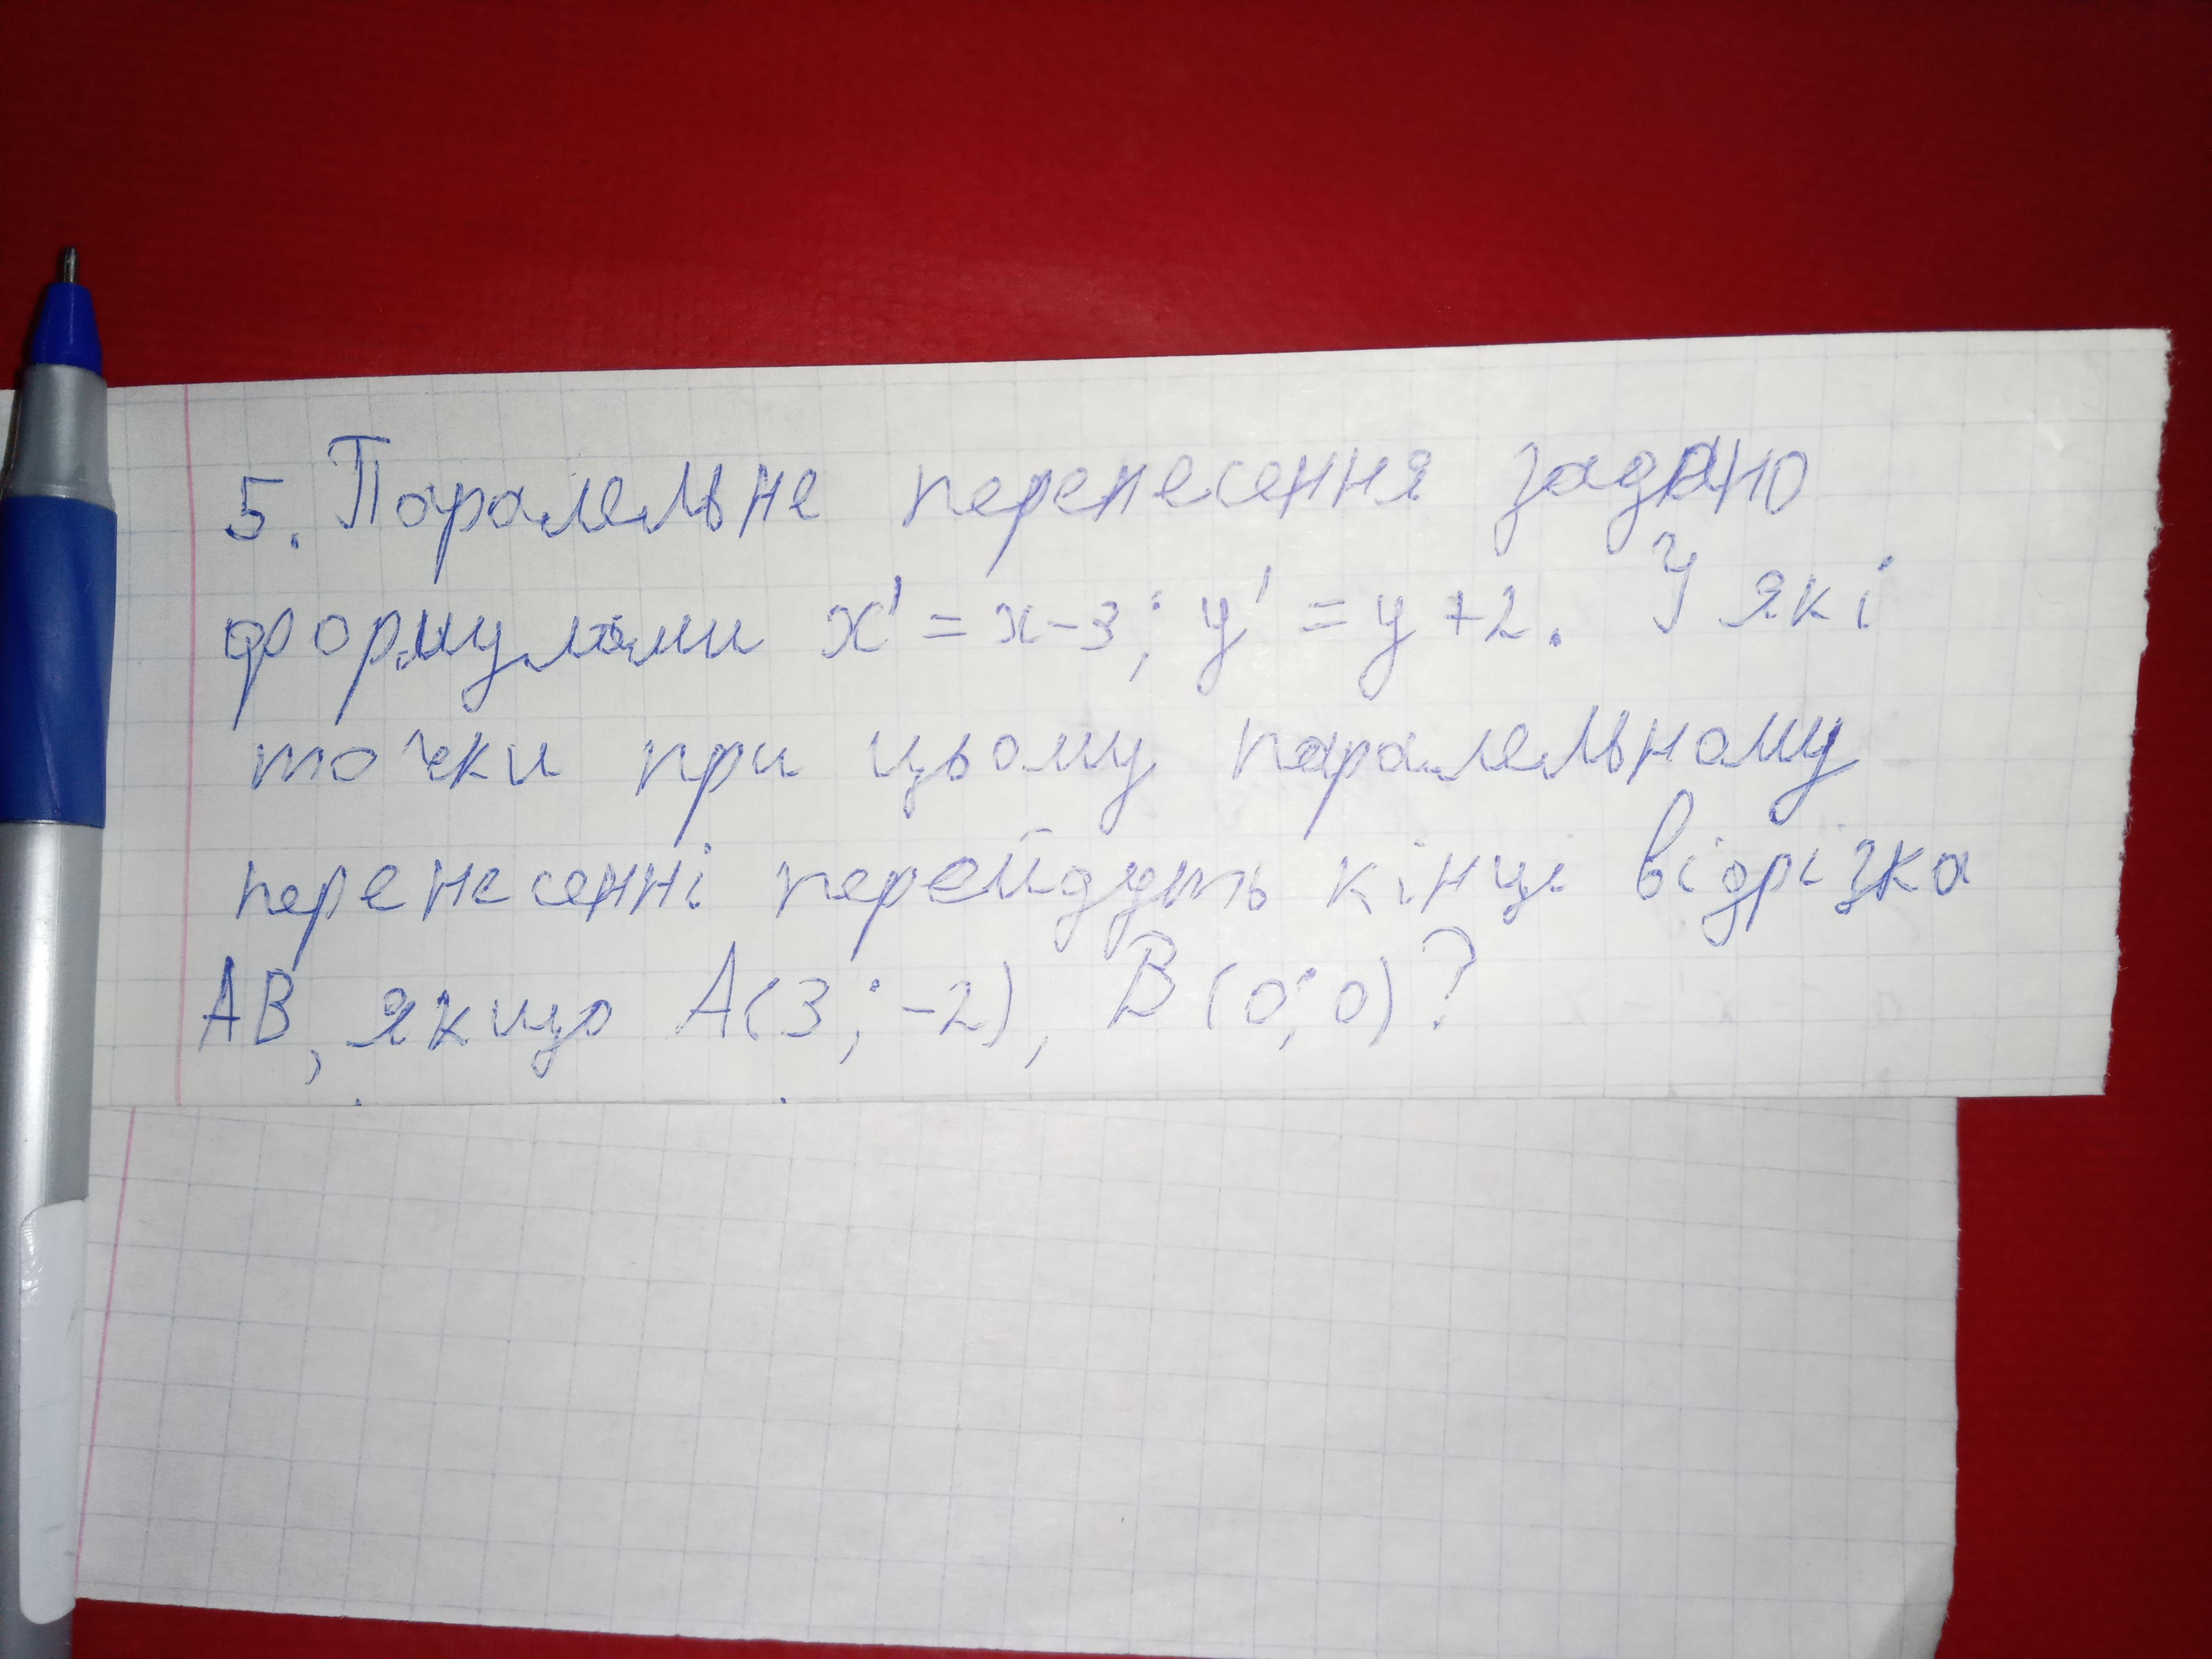 5. Паралельне перенесення задано
формулами x' = x-3; y' = y +2. У які
точки при цьому паралельному
перенесенні перейдуть кінці відрізка
AB, якщо A(3; -2), B (0; 0)?